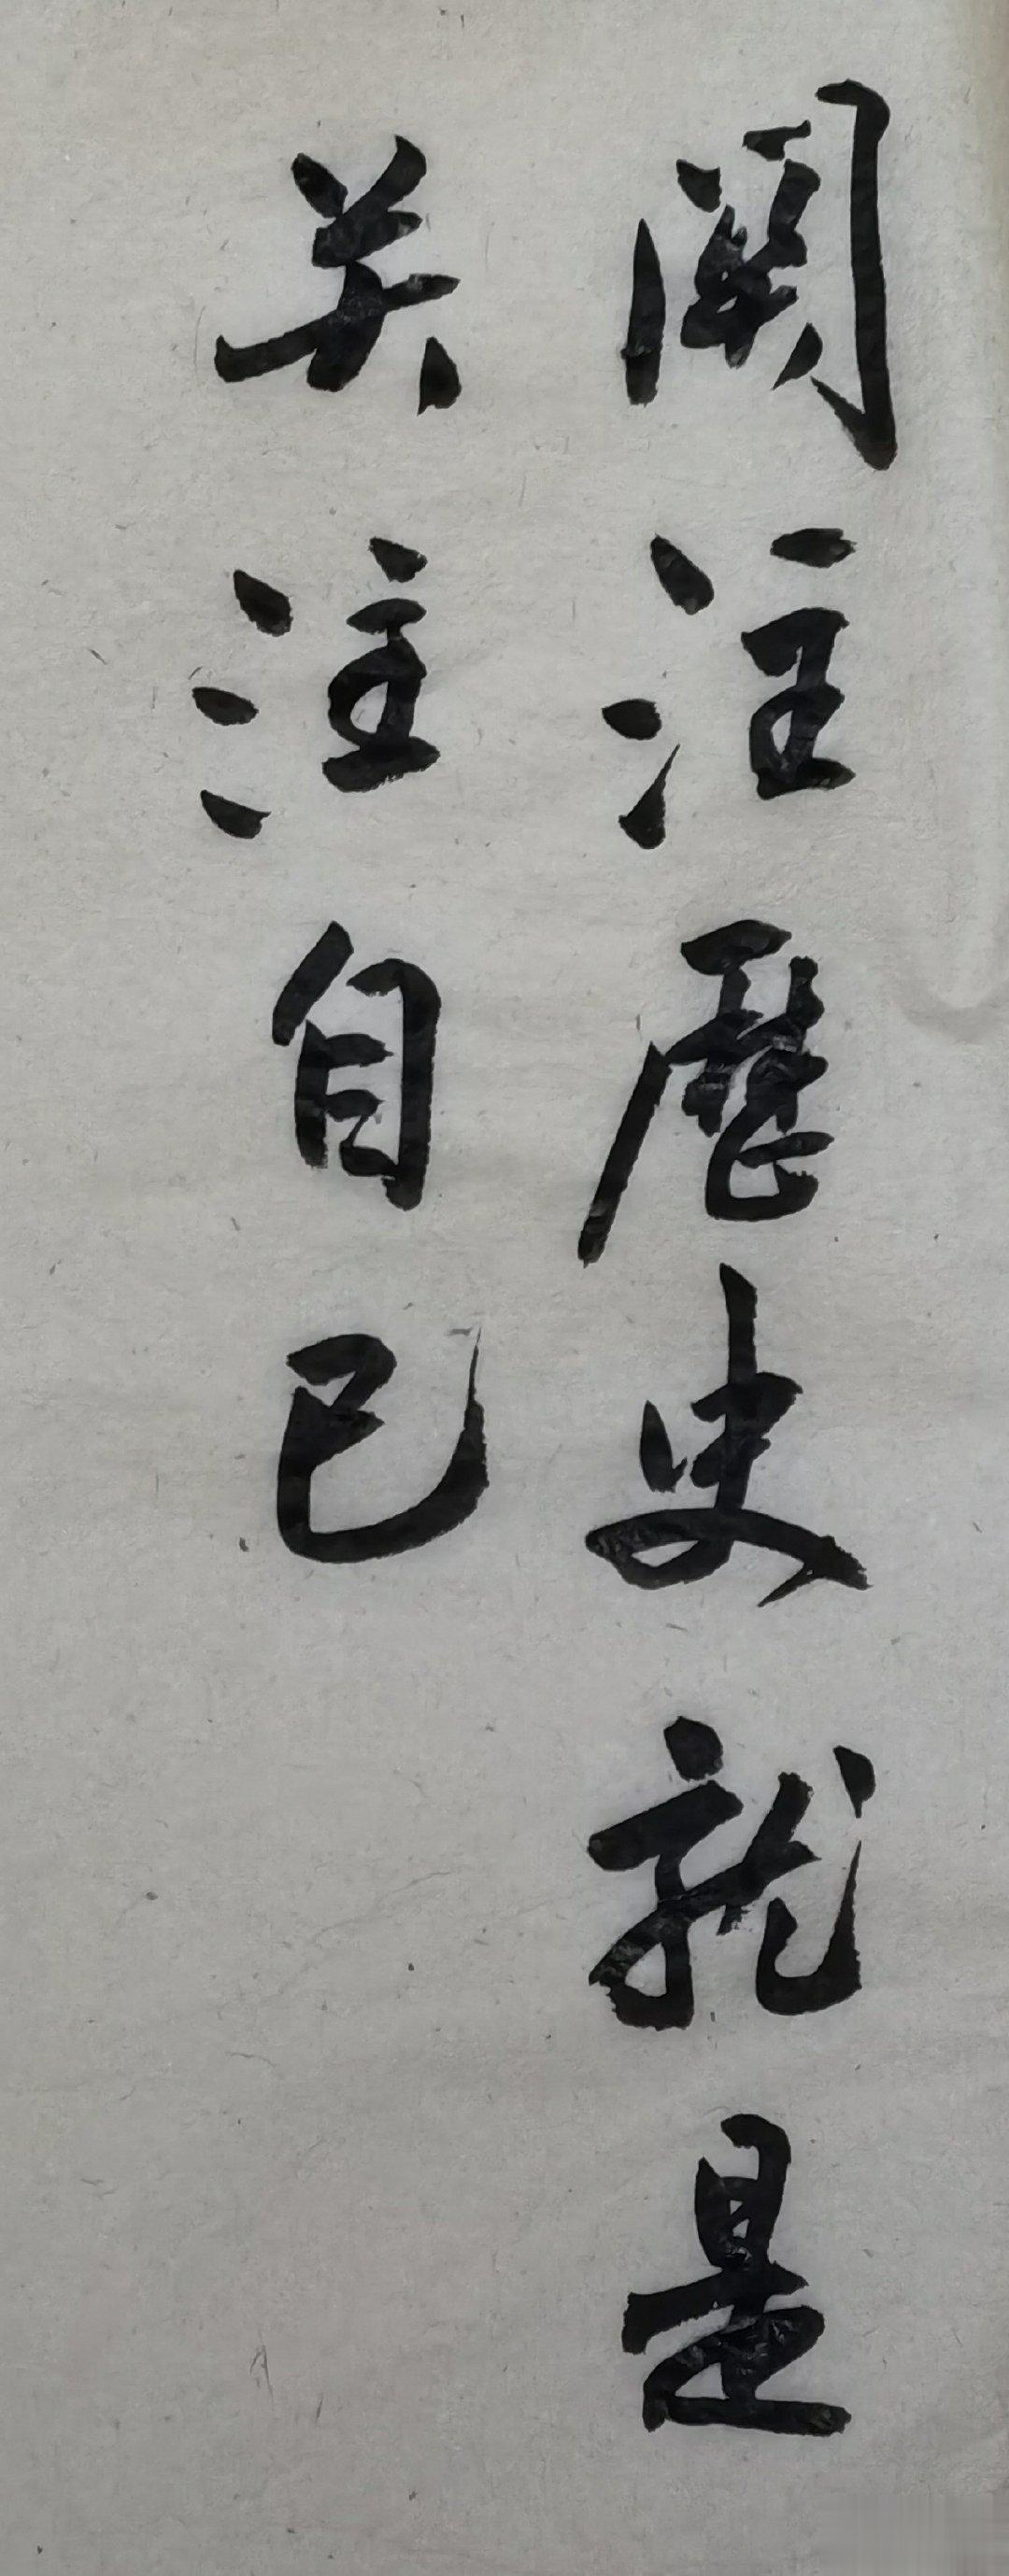 関注歷史就是
关注自己